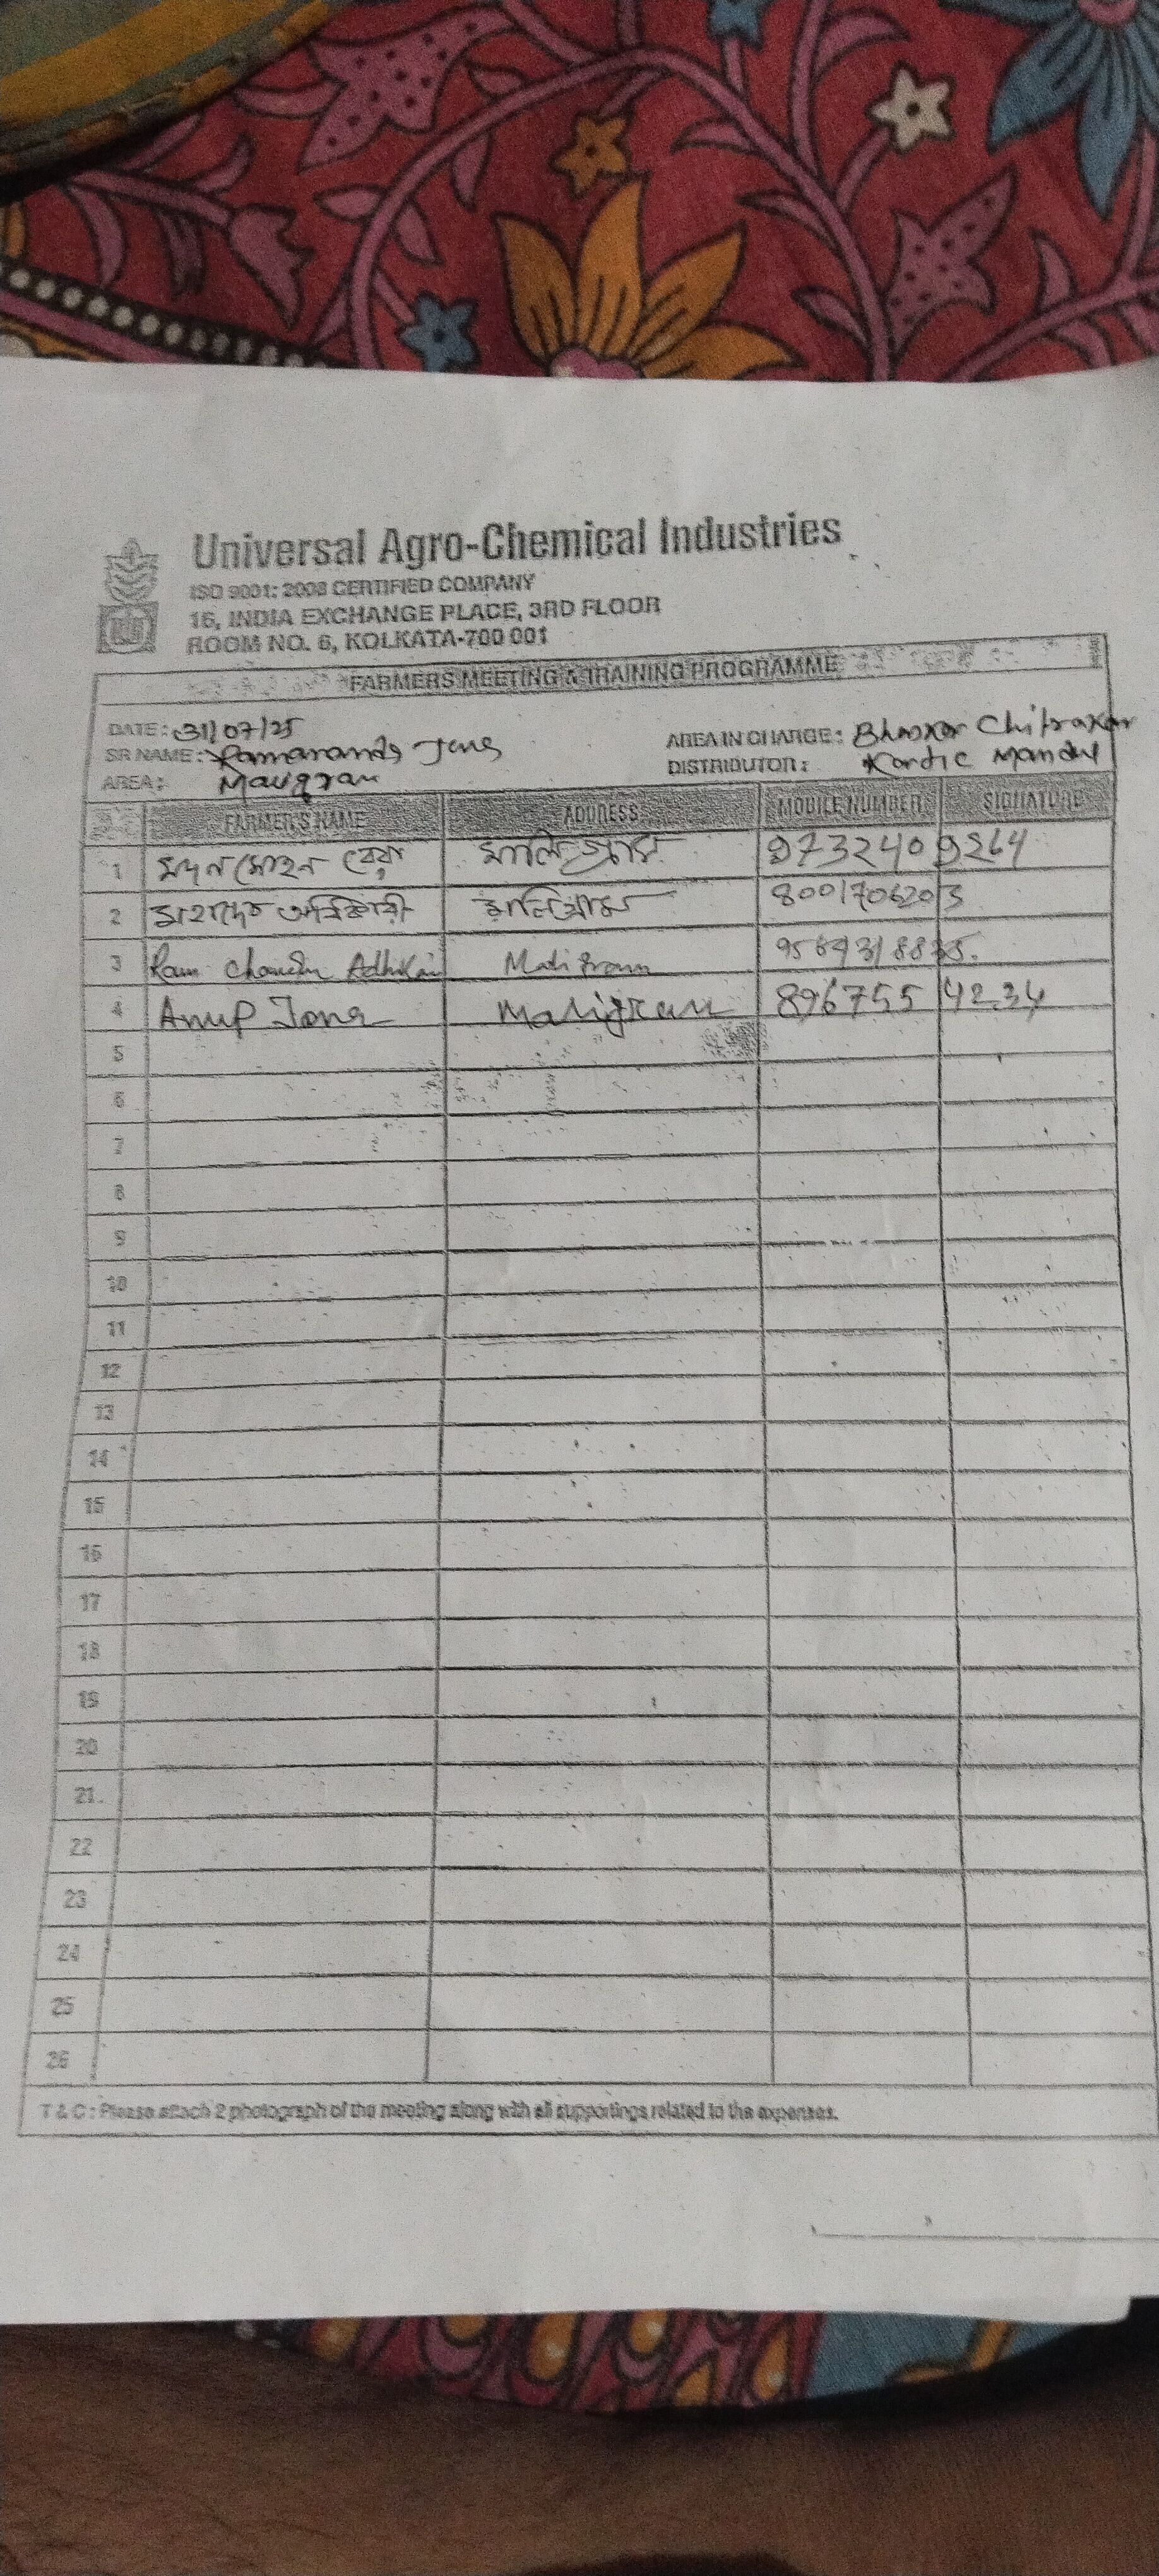 Universal Agro-Chemical Industries
ISO 9001: 2008 CERTIFIED COMPANY
16, INDIA EXCHANGE PLACE, 3RD FLOOR
ROOM NO. 6, KOLKATA-700 001
FARMERS MEETING & TRAINING PROGRAMME
DATE: 31/07/25
SR NAME: Jana
AREA: Maligram
AREA IN CHARGE: Bhaskar Chitrakar
DISTRIBUTOR: Kartic Mandal
FARMER'S NAME ADDRESS MOBILE NUMBER SIGNATURE
1 মদন মোহন বেরা মালিগ্রাম 9732409264
2 মহাদেব অধিকারী মালিগ্রাম 8001706203
3 Ram Chandra Adhikari Maligram
4 Anup Jana Maligram 8967554234
5
6
7
8
9
10
11
12
13
14
15
16
17
18
19
20
21.
22
23
24
25
26
T & C : Please attach 2 photograph of the meeting along with all supportings related to the expenses.